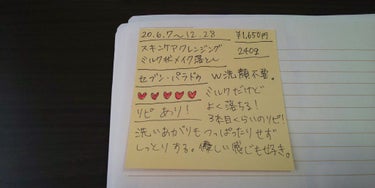 20.6.7〜12.28 ¥1,650円
スキンケアクレンジング 240g
ミルク状メイク落とし
セブン・パラドゥ W洗顔不要。
♥♥♥♥♥ ミルクだけど
よく落ちる!
リピあり! 3本目くらいのリピ!
洗いあがりもつっぱたりせず
しっとりする。優しい感じも好き。